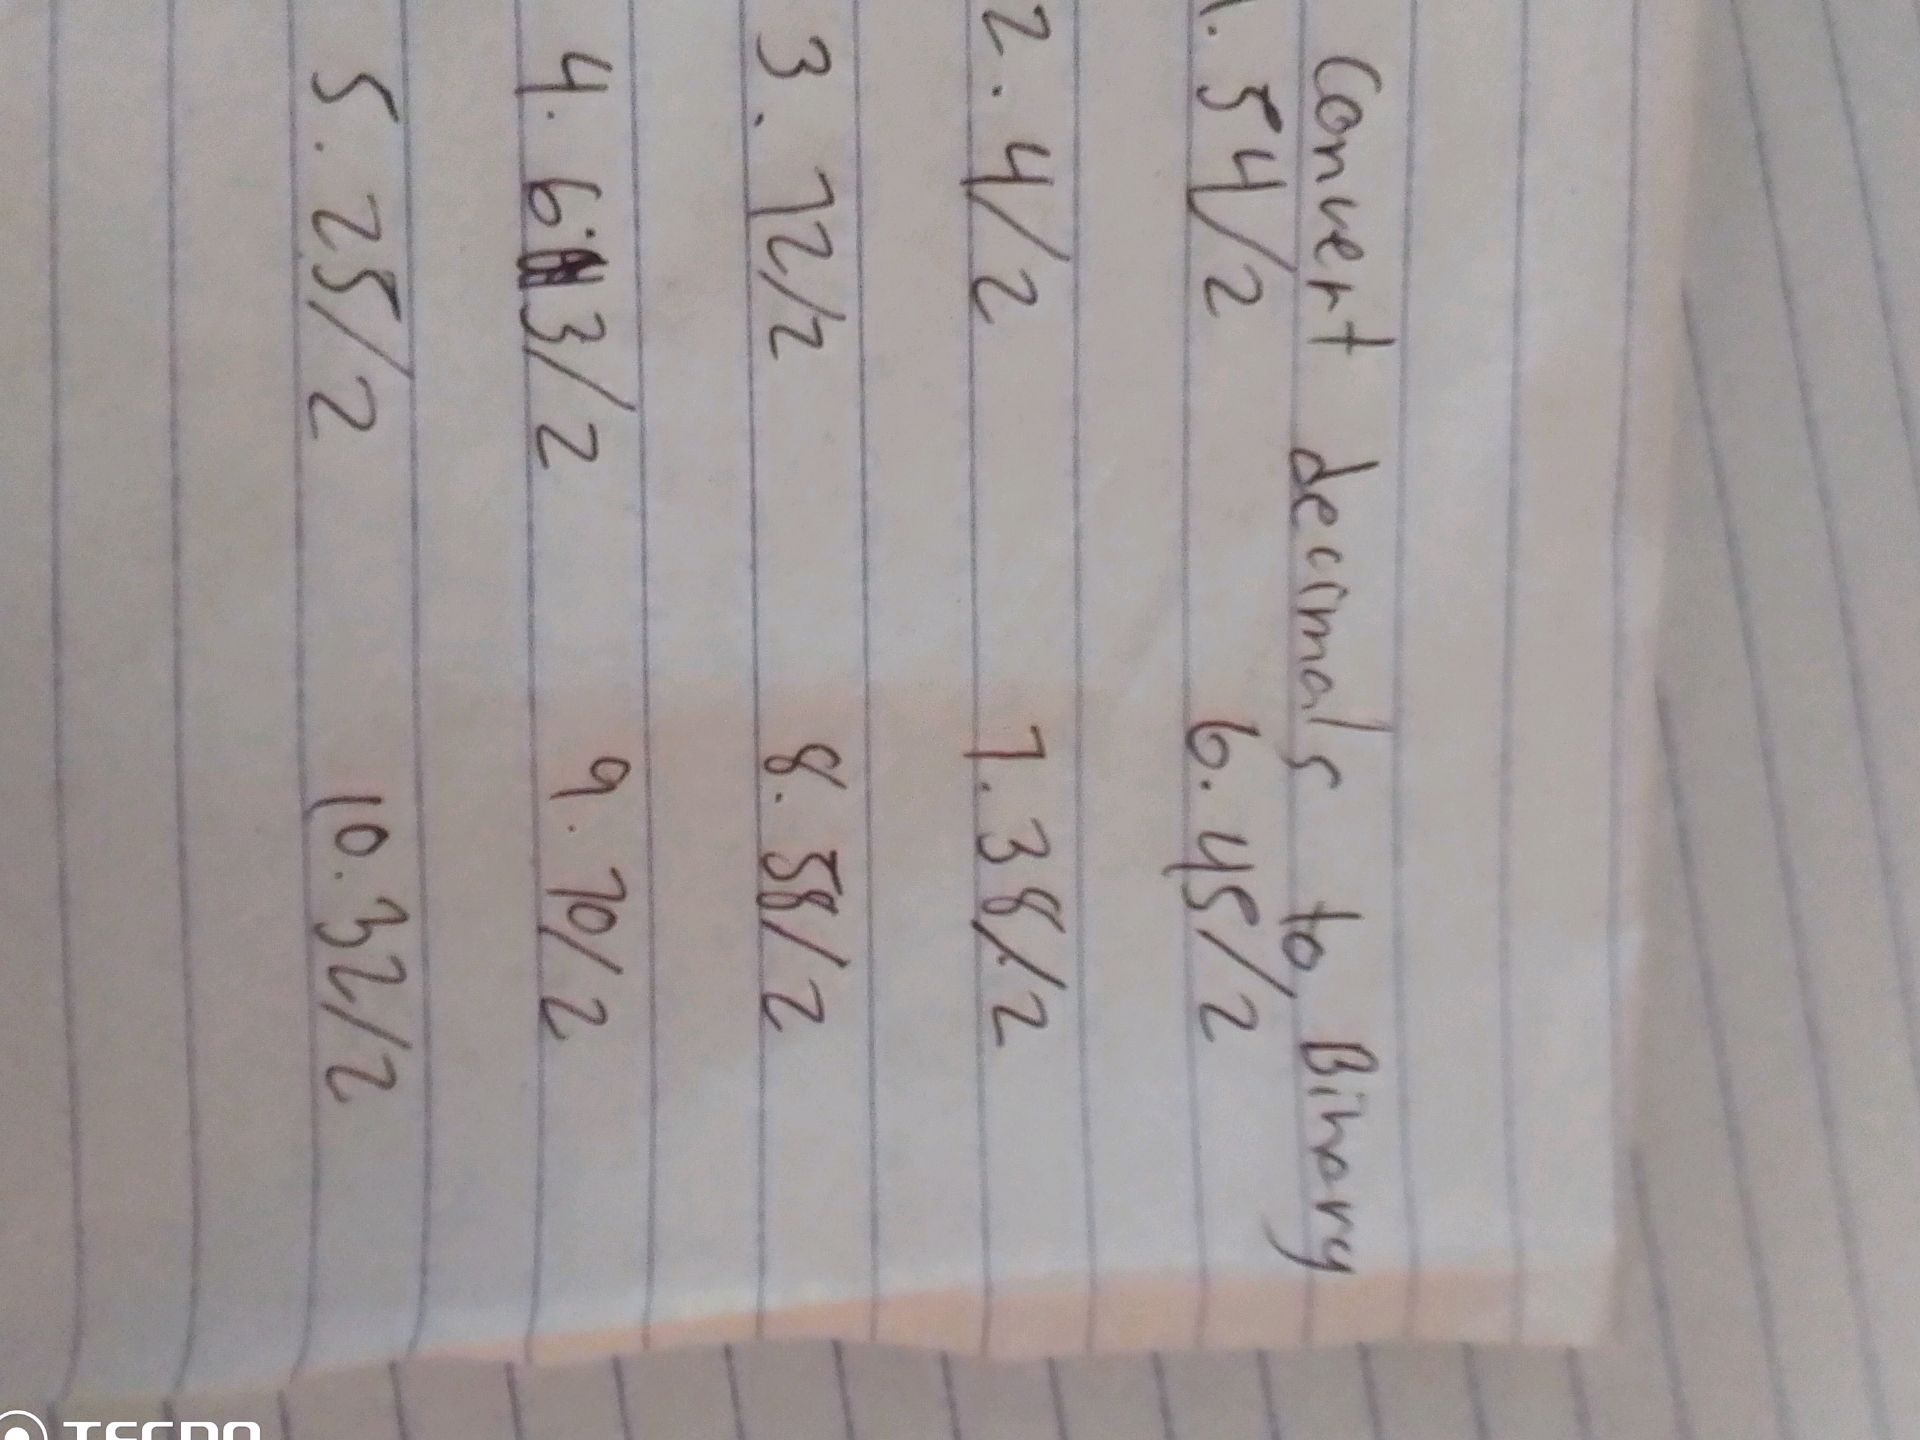 Convert decimals to Binary
1. 54/2 6. 45/2
2. 4/2 7. 38/2
3. 72/2 8. 58/2
4. 63/2 9. 70/2
5. 25/2 10. 32/2
TECNO